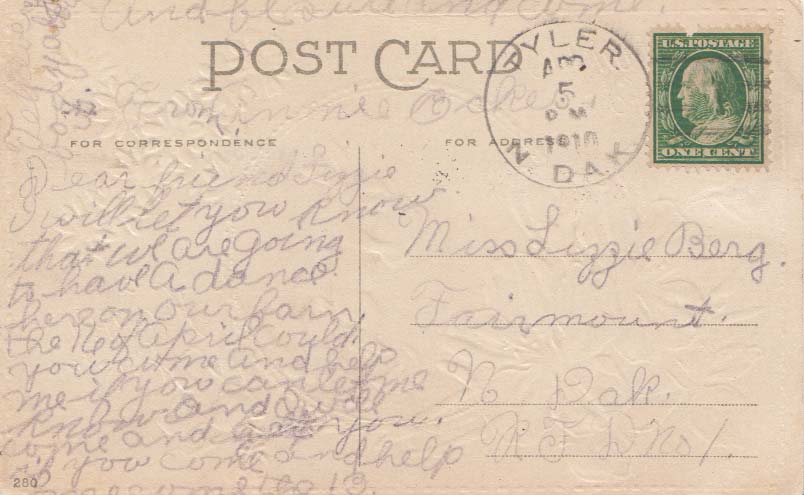 and
come.
POST CARD
From
FOR CORRESPONDENCE
FOR ADDRESS
TYLER
APR
5
1910
N. DAK
U.S. POSTAGE
ONE CENT
Dear friend Lizzie
I will let you know
that we are going
to have a dance
here on our farm.
the of April could
you come and help
me if you can let me
know and I will
come and get you.
if you come and help
Miss Lizzie Berg.
Fairmount.
N Dak.
R F D No 1.
280